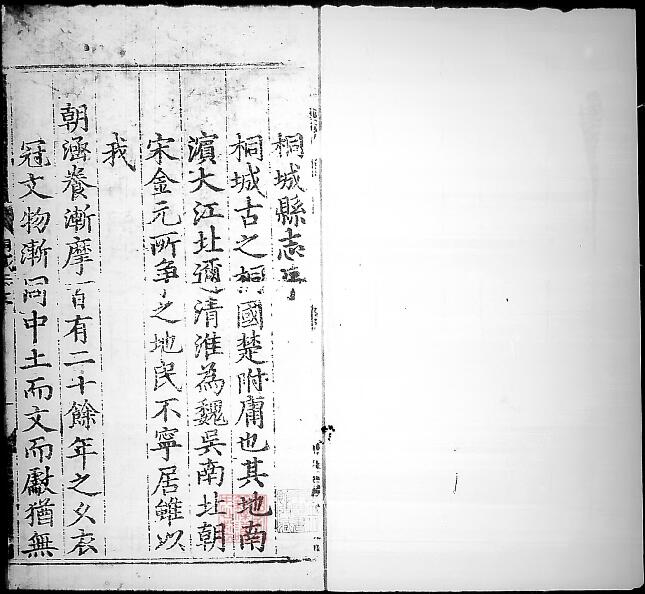 桐城縣志序
桐城古之桐國楚附庸也其地南
濵大江北邇清淮為魏吳南北朝
宋金元所争之地民不寧居雖以
我
朝涵養漸摩一百有二十餘年之久衣
冠文物漸同中土而文而獻猶無